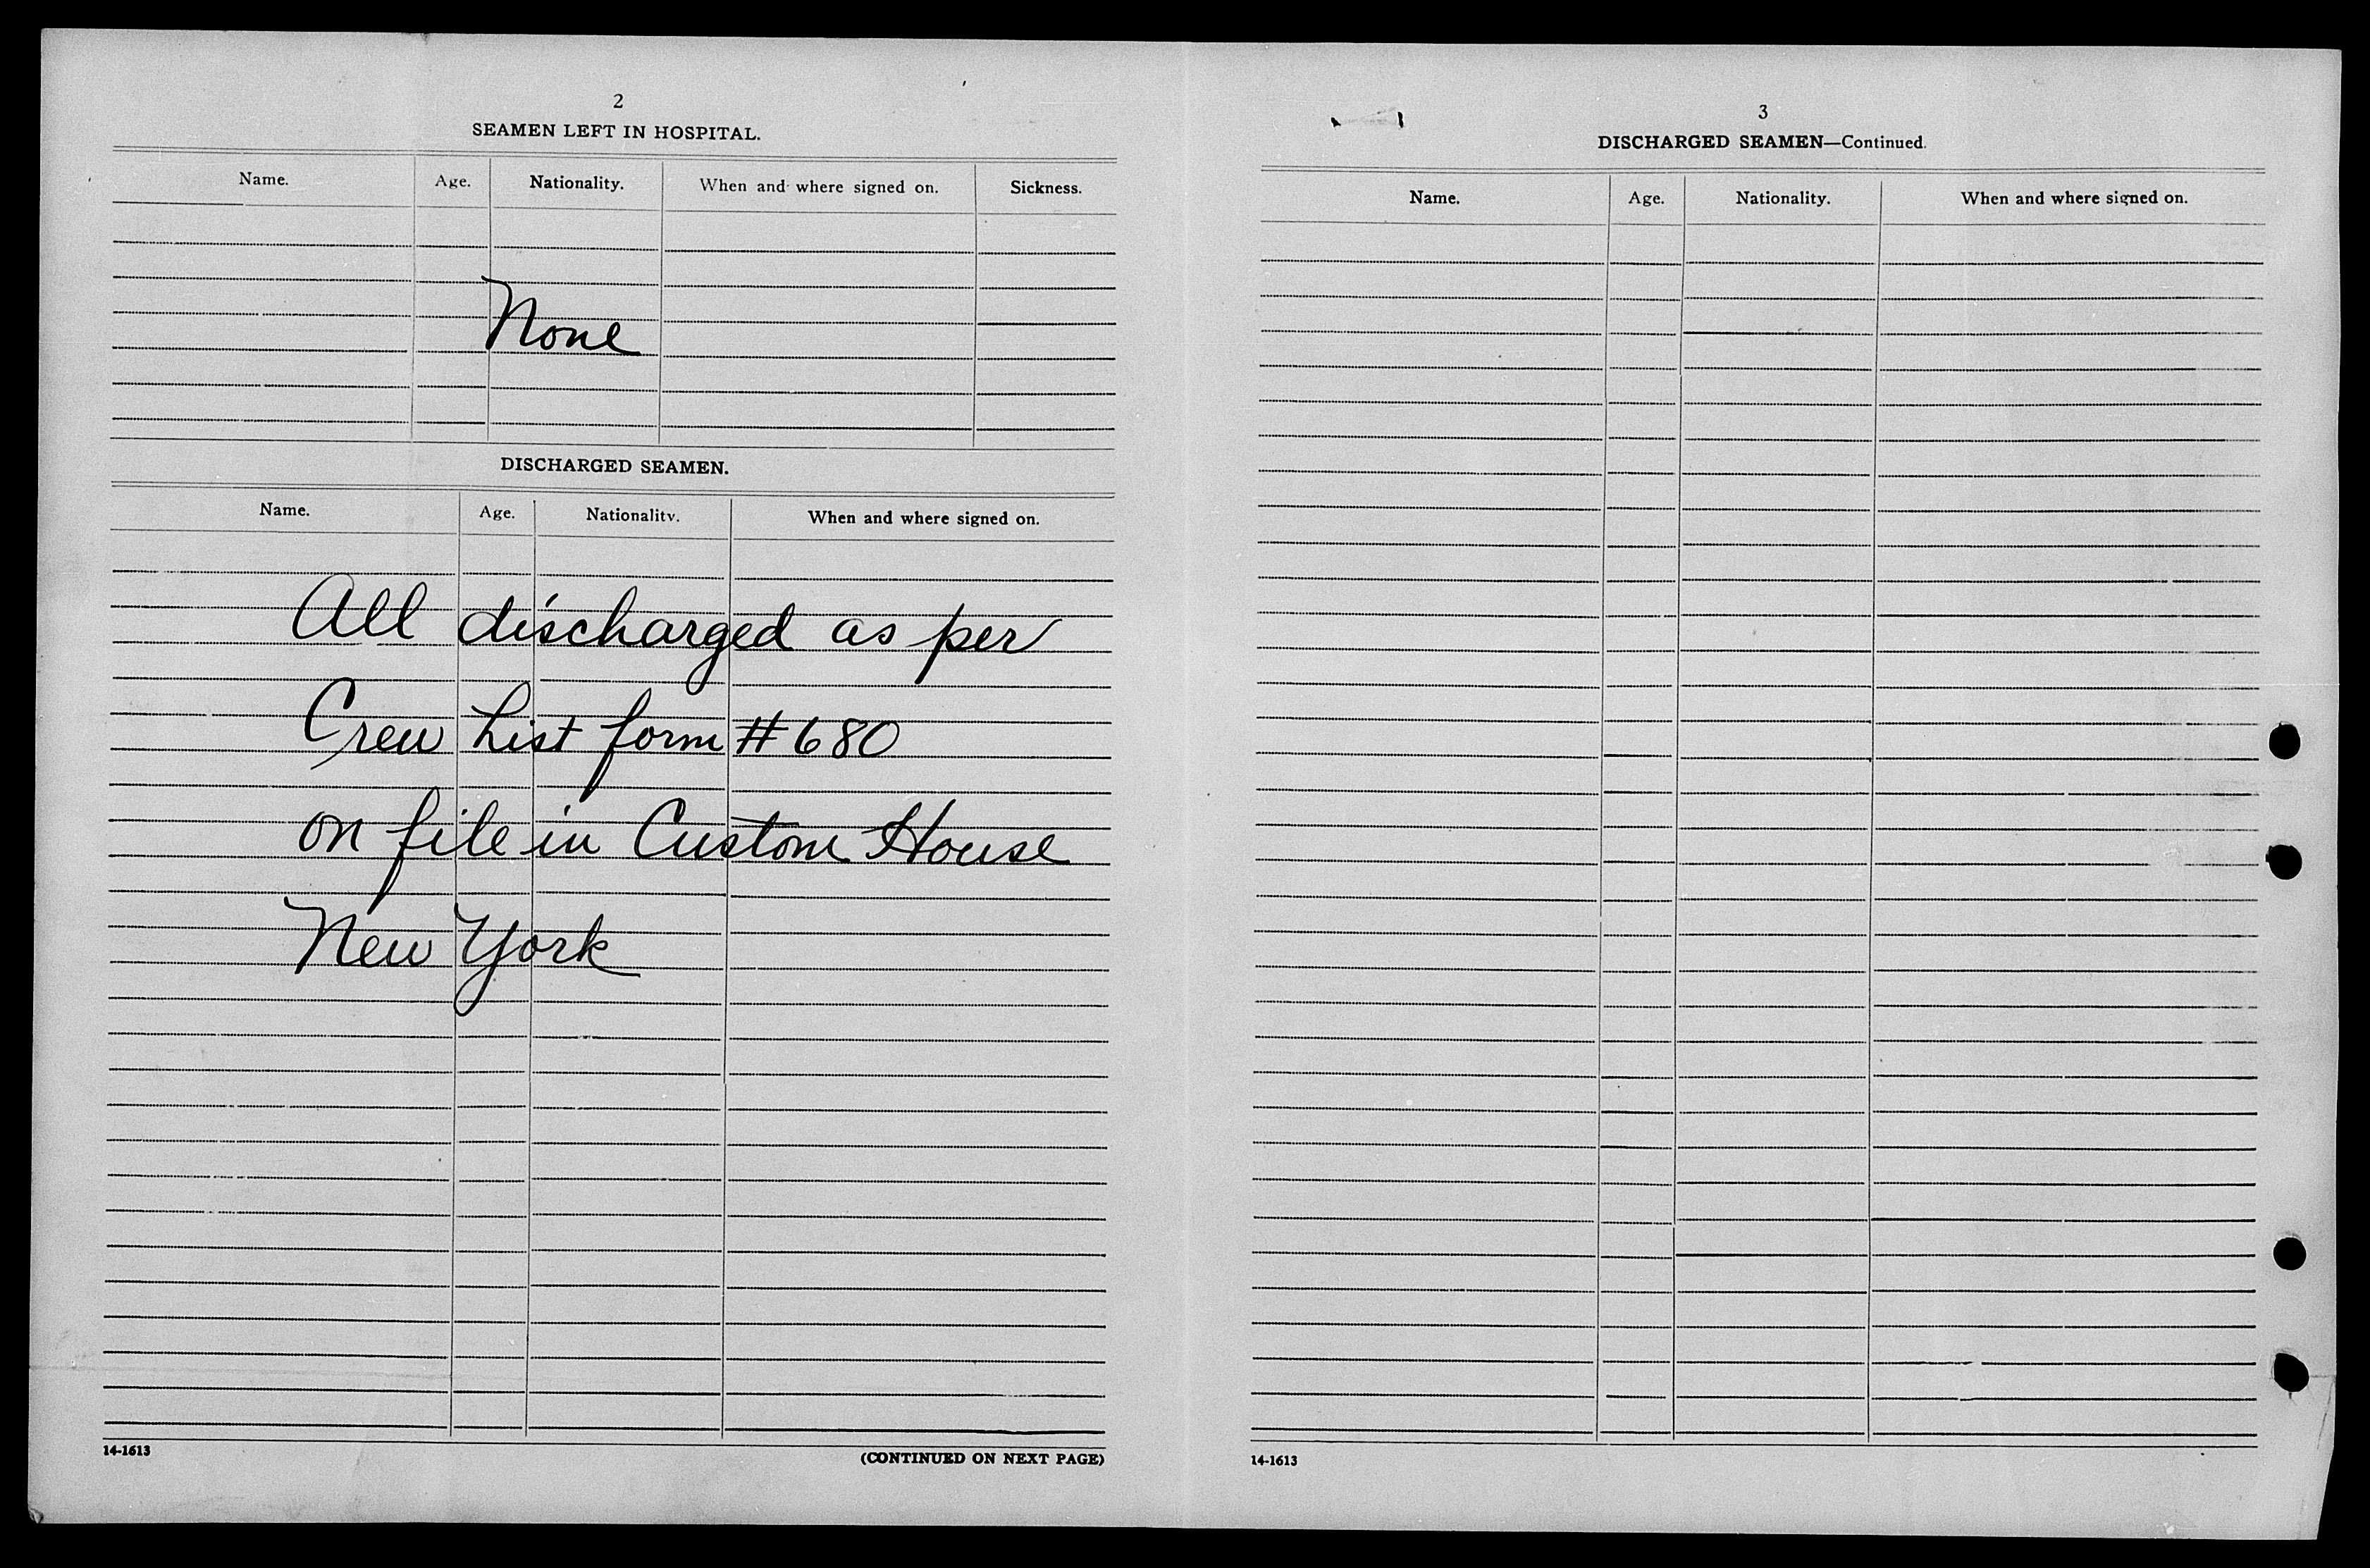 2
SEAMEN LEFT IN HOSPITAL.
Name. Age. Nationality. When and where signed on. Sickness.
None
DISCHARGED SEAMEN.
Name. Age. Nationality. When and where signed on.
All discharged as per
Crew List form #680
on file in Custom House
New York
14-1613 (CONTINUED ON NEXT PAGE)
3
DISCHARGED SEAMEN—Continued.
Name. Age. Nationality. When and where signed on.
14-1613